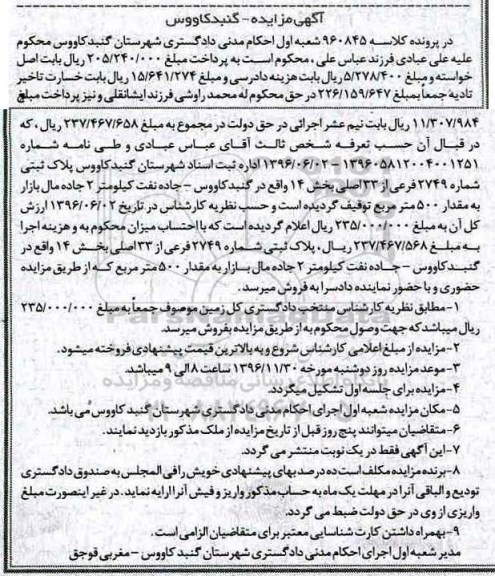 آگهی مزایده - گنبدکاووس
در پرونده کلاسه ۹۶۰۸۴۵ شعبه اول احکام مدنی دادگستری شهرستان گنبدکاووس محکوم
علیه علی عبادی فرزند عباس علی ، محکوم است به پرداخت مبلغ ۲۰۵/۲۴۰/۰۰۰ ریال بابت اصل
خواسته و مبلغ ۵/۲۷۸/۴۰۰ ریال بابت هزینه دادرسی و مبلغ ۱۵/۶۴۱/۲۷۴ ریال بابت خسارت تاخیر
تادیه جمعا بمبلغ ۲۲۶/۱۵۹/۶۴۷ در حق محکوم له محمد راوشی فرزند ایشانقلی و نیز پرداخت مبلغ
۱۱/۳۰۷/۹۸۴ ریال بابت نیم عشر اجرائی در حق دولت در مجموع به مبلغ ۲۳۷/۴۶۷/۶۵۸ ریال ، که
در قبال آن حسب تعرفه شخص ثالث آقای عباس عبادی و طی نامه شماره
۱۳۹۶۰۵۸۱۲۰۰۴۰۰۱۲۵۱ – ۱۳۹۶/۰۶/۰۲ اداره ثبت اسناد شهرستان گنبدکاووس پلاک ثبتی
شماره ۲۷۴۹ فرعی از ۳۳ اصلی بخش ۱۴ واقع در گنبدکاووس – جاده نفت کیلومتر ۲ جاده مال بازار
به مقدار ۵۰۰ متر مربع توقیف گردیده است و حسب نظریه کارشناس در تاریخ ۱۳۹۶/۰۶/۰۲ ارزش
کل آن به مبلغ ۲۳۵/۰۰۰/۰۰۰ ریال اعلام گردیده است که با احتساب میزان محکوم به و هزینه اجرا
به مبلغ ۲۳۷/۴۶۷/۵۶۸ ریال ، پلاک ثبتی شماره ۲۷۴۹ فرعی از ۳۳ اصلی بخش ۱۴ واقع در
گنبدکاووس – جاده نفت کیلومتر ۲ جاده مال بازار به مقدار ۵۰۰ متر مربع که از طریق مزایده
حضوری و با حضور نماینده دادسرا به فروش میرسد.
۱- مطابق نظریه کارشناس منتخب دادگستری کل زمین موصوف جمعاً به مبلغ ۲۳۵/۰۰۰/۰۰۰
ریال میباشد که جهت وصول محکوم به از طریق مزایده بفروش میرسد.
۲- مزایده از مبلغ اعلامی کارشناس شروع و به بالاترین قیمت پیشنهادی فروخته میشود.
۳- موعد مزایده روز دوشنبه مورخه ۱۳۹۶/۱۱/۳۰ ساعت ۸ الی ۹ میباشد.
۴- مزایده برای جلسه اول تشکیل میگردد.
۵- مکان مزایده شعبه اول اجرای احکام مدنی دادگستری شهرستان گنبد کاووس می باشد.
۶- متقاضیان میتوانند پنج روز قبل از تاریخ مزایده از ملک مذکور بازدید نمایند.
۷- این آگهی فقط در یک نوبت منتشر می گردد.
۸- برنده مزایده مکلف است ده درصد بهای پیشنهادی خویش را فی المجلس به صندوق دادگستری
تودیع و الباقی آنرا در مهلت یک ماه به حساب مذکور واریز و فیش آنرا ارایه نماید. در غیر اینصورت مبلغ
واریزی از وی در حق دولت ضبط می گردد.
۹- بهمراه داشتن کارت شناسایی معتبر برای متقاضیان الزامی است.
مدیر شعبه اول اجرای احکام مدنی دادگستری شهرستان گنبد کاووس – مغربی قوجق